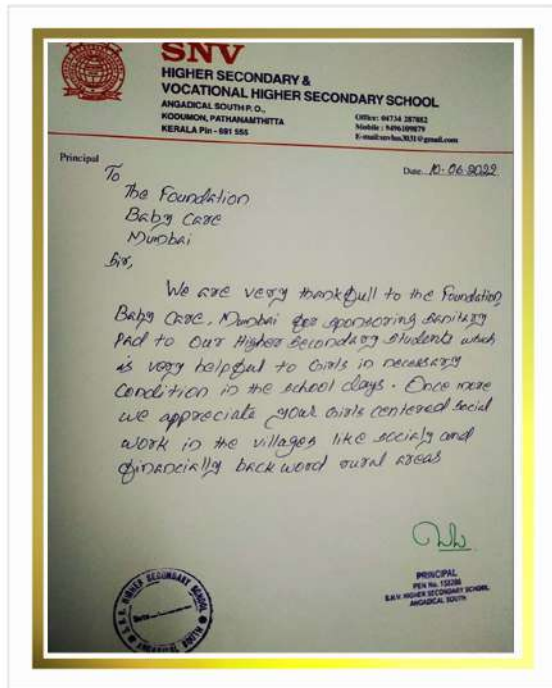 SNV
HIGHER SECONDARY &
VOCATIONAL HIGHER SECONDARY SCHOOL
ANGADICAL SOUTH P. O.,
KODUMON, PATHANAMTHITTA
KERALA Pin - 691 555
Office: 04734 287882
Mobile : 9496109879
E-mail:snvhss3031@gmail.com
Principal
Date 10-06-2022
To
The Foundation
Baby Care
Mumbai
Sir,
We are very thankfull to the Foundation
Baby Care, Mumbai for sponsoring Sanitary
Pad to Our Higher Secondary Students which
is very helpful to Girls in necessary
Condition in the school days. Once more
we appreciate your Girls centered Social
work in the villages like socialy and
financially back word rural areas
PRINCIPAL
PEN No.
S.N.V. HIGHER SECONDARY SCHOOL
ANGADICAL SOUTH
S.N.V. HIGHER SECONDARY SCHOOL